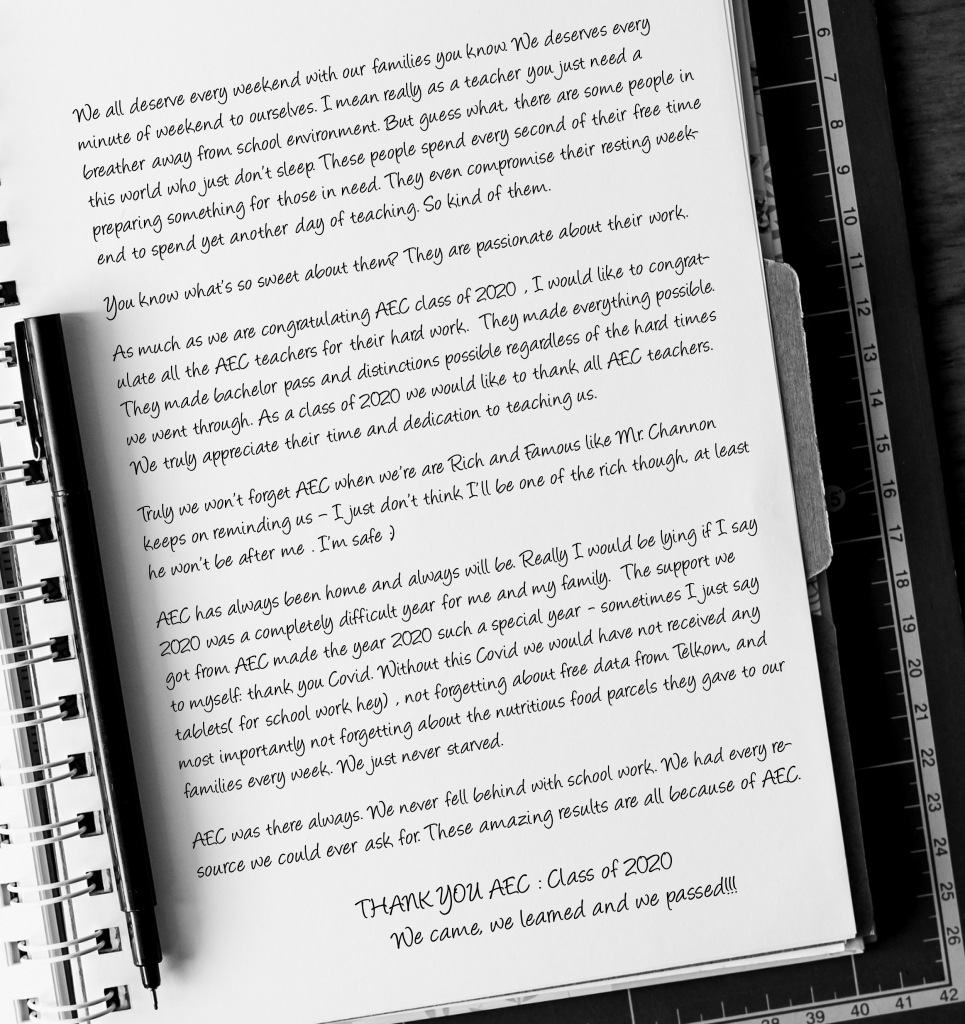 We all deserve every weekend with our families you know. We deserves every
minute of weekend to ourselves. I mean really as a teacher you just need a
breather away from school environment. But guess what, there are some people in
this world who just don't sleep. These people spend every second of their free time
preparing something for those in need. They even compromise their resting week-
end to spend yet another day of teaching. So kind of them.
You know what's so sweet about them? They are passionate about their work.
As much as we are congratulating AEC class of 2020 , I would like to congrat-
ulate all the AEC teachers for their hard work. They made everything possible.
They made bachelor pass and distinctions possible regardless of the hard times
we went through. As a class of 2020 we would like to thank all AEC teachers.
We truly appreciate their time and dedication to teaching us.
Truly we won't forget AEC when we're are Rich and Famous like Mr. Channon
keeps on reminding us – I just don't think I'll be one of the rich though, at least
he won't be after me . I'm safe :)
AEC has always been home and always will be. Really I would be lying if I say
2020 was a completely difficult year for me and my family. The support we
got from AEC made the year 2020 such a special year – sometimes I just say
to myself: thank you Covid. Without this Covid we would have not received any
tablets( for school work hey) , not forgetting about free data from Telkom, and
most importantly not forgetting about the nutritious food parcels they gave to our
families every week. We just never starved.
AEC was there always. We never fell behind with school work. We had every re-
source we could ever ask for. These amazing results are all because of AEC.
THANK YOU AEC : Class of 2020
We came, we learned and we passed!!!
6
7
8
9
10
11
12
13
14
15
5
16
17
18
19
20
21
22
23
24
25
26
38
39
40
41
42